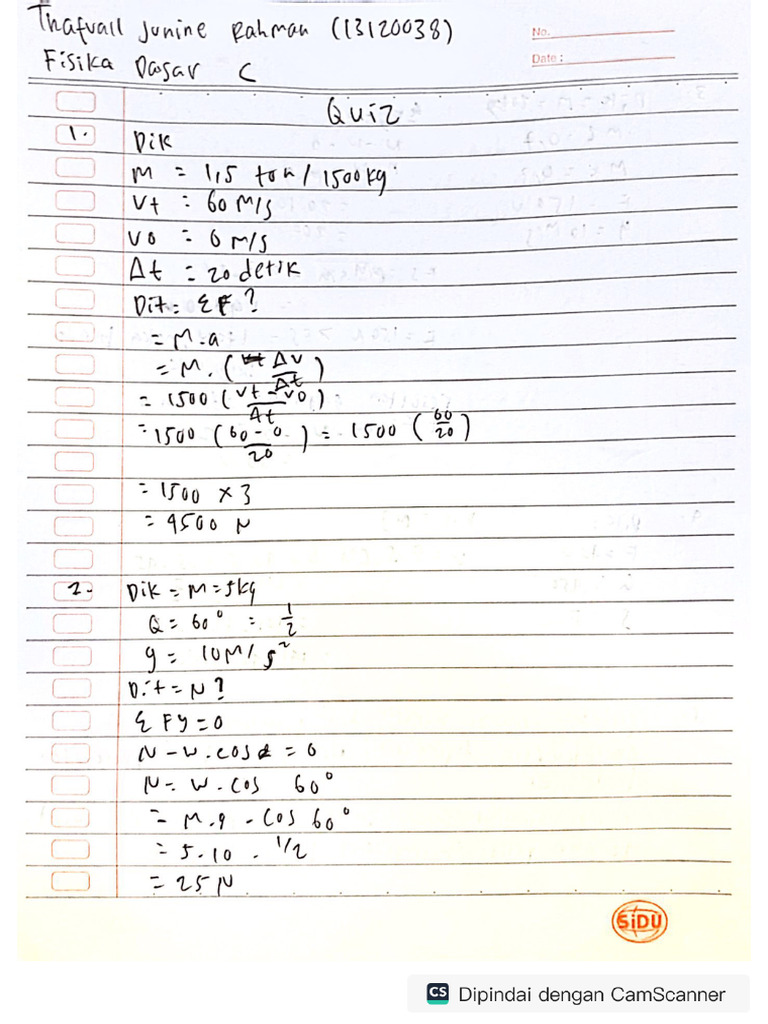 Thafvall Junine Rahman (13120038)
No.
Fisika Dasar C
Date :
Quiz
1. Dik
M = 1,5 ton / 1500 kg
Vt = 60 M/s
Vo = 0 M/s
Δt = 20 detik
Dit = ΣF ?
= M.a
= M. (Δv/Δt)
= 1500 (vt - vo/Δt)
= 1500 (60 - 0/20) = 1500 (60/20)
= 1500 x 3
= 4500 N
2. Dik = M = 5kg
Q = 60° = 1/2
g = 10 M/s²
Dit = N ?
Σ Fy = 0
N - W. cos α = 0
N = W. cos 60°
= M.g . cos 60°
= 5.10 . 1/2
= 25 N
SiDU
CS Dipindai dengan CamScanner